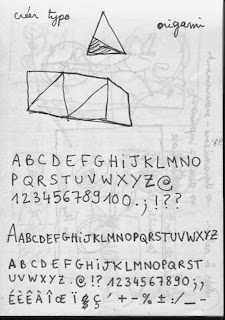 créer typo
origami
ABCDEFGHiJKLMNO
PQRSTUVWXYZ@
12345678910 0.;!??
AABCDEFGHiJKLMNOPQRSTUVWXYZ
ABCDEFGHiJKLMNOPQRST
UVWXYZ.@!?1234567890;,
ÉÈÊÀÎŒÏ§Ç'+-%±:/_-